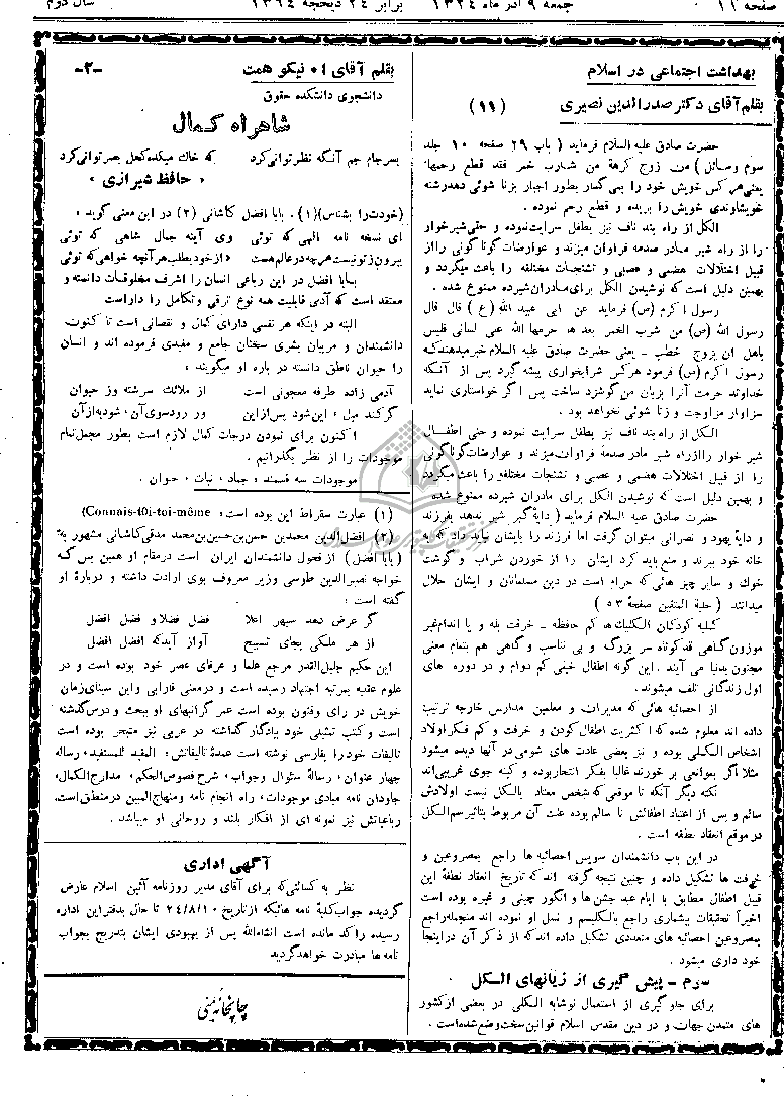 صفحه ۱۱ جمعه ۹ آذر ماه ۱۳۲۴ برابر ۲۴ ذیحجه ۱۳۶۴ سال دوم
بهداشت اجتماعی در اسلام
بقلم آقای دکتر صدرالدین نصیری (۱۱)
حضرت صادق علیه السلام فرماید ( باب ۲۹ صفحه ۱۰ جلد
سوم وسائل ) من زوج کرمة من شارب خمر فقد قطع رحمها
یعنی هر کس خویش خود را بمی گسار بطور اجبار بزنا شوئی دهد رشته
خویشاوندی خویش را بریده و قطع رحم نموده .
الکل از راه بند ناف نیز بطفل سرایت نموده و حتی شیر خوار
را از راه شیر مادر صدمه فراوان میزند و عوارضات گوناگونی را از
قبیل اختلالات هضمی و عصبی و تشنجات مختلفه را باعث میگردد و
بهمین دلیل است که نوشیدن الکل برای مادران شیرده ممنوع شده .
رسول اکرم (ص) فرماید عن ابی عبد الله ( ع ) قال قال
رسول الله (ص) من شرب الخمر بعد ما حرمها الله علی لسانی فلیس
باهل ان یزوج خطب ـ یعنی حضرت صادق علیه السلام خبر میدهد که
رسول اکرم (ص) فرمود هرکس شرابخواری پیشه گیرد پس از آنکه
خداوند حرمت آنرا بزبان من گوشزد ساخت پس اگر خواستاری نماید
سزاوار مزاوجت و زنا شوئی نخواهد بود .
الکل از راه بند ناف نیز بطفل سرایت نموده و حتی اطفال
شیر خوار را از راه شیر مادر صدمه فراوان میزند و عوارضات گوناگونی
را از قبیل اختلالات هضمی و عصبی و تشنجات مختلفه را باعث میگردد
و بهمین دلیل است که نوشیدن الکل برای مادران شیرده ممنوع شده
حضرت صادق علیه السلام فرماید ( دایه گبر شیر ندهد بفرزند
و دایه یهود و نصرانی میتوان گرفت اما فرزند را بایشان نباید داد که به
خانه خود ببرند و منع باید کرد ایشان را از خوردن شراب و گوشت
خوک و سایر چیز هائی که حرام است در دین مسلمانان و ایشان حلال
میدانند ( حلیة المتقین صفحه ۵۳ )
کلیه کودکان الکلیک ها کم حافظه ـ خرفت بله و یا اندام غیر
موزون گاهی قد کوتاه سر بزرگ و بی تناسب و گاهی هم بتمام معنی
مجنون بدنیا می آیند . این گونه اطفال خیلی کم دوام و در دوره های
اول زندگانی تلف میشوند .
از احصائیه هائی که مدیران و معلمین مدارس خارجه ترتیب
داده اند معلوم شده که اکثریت اطفال کودن و خرفت و کم فکر اولاد
اشخاص الکلی بوده و نیز بعضی عادت های شومی در آنها دیده میشود
مثلا اگر بموانعی بر خورند غالبا بفکر انتحار بوده و کینه جوی غریبی اند
نکته دیگر آنکه تا موقعی که شخص معتاد بالکل نیست اولادش
سالم و پس از اعتیاد اطفالش نا سالم بوده علت آن مربوط بتاثیر سم الکل
در موقع انعقاد نطفه است .
در این باب دانشمندان سویس احصائیه ها راجع بمصروعین و
خرفت ها تشکیل داده و چنین نتیجه گرفته اند که تاریخ انعقاد نطفه این
قبیل اطفال مطابق با ایام عید جشن ها و انگور چینی و غیره بوده است
اخیراً تحقیقات بیشماری راجع بالکلیسم و نسل او نموده اند منجمله راجع
بمصروعین احصائیه های متعددی تشکیل داده اند که از ذکر آن در اینجا
خود داری میشود .
سوم ـ پیش گیری از زیانهای الکل
برای جلو گیری از استعمال نوشابه الکلی در بعضی از کشور
های متمدن جهان و در دین مقدس اسلام قوانین سخت وضع شده است .
بقلم آقای ۱۰ نیکو همت ـ۲ـ
دانشجوی دانشکده حقوق
شاهراه کمال
بسر جام جم آنگه نظر توانی کرد که خاک میکده کحل بصر توانی کرد
« حافظ شیرازی »
(خودت را بشناس)(۱) . بابا افضل کاشانی (۲) در این معنی گوید :
ای نسخه نامه الهی که توئی وی آینه جمال شاهی که توئی
بیرون ز تو نیست هر چه در عالم هست از خود بطلب هر آنچه خواهی که توئی
بابا افضل در این رباعی انسان را اشرف مخلوقات دانسته و
معتقد است که آدمی قابلیت همه نوع ترقی و تکامل را داراست
البته در اینکه هر نفسی دارای کمال و نقصانی است تا کنون
دانشمندان و مربیان بشری سخنان جامع و مفیدی فرموده اند و انسان
را حیوان ناطق دانسته در باره او میگویند :
آدمی زاده طرفه معجونی است از ملائک سرشته وز حیوان
گر کند میل ، این شود پس از این ور رود سوی آن ، شود به از آن
اکنون برای نمودن درجات کمال لازم است بطور مجمل تمام
موجودات را از نظر بگذرانیم .
موجودات سه قسمند : جماد ، نبات ، حیوان .
(۱) عبارت سقراط این بوده است : Connais-toi-toi-même)
(۲) افضل الدین محمد بن حسن بن حسین بن محمد مدقی کاشانی مشهور به
( بابا افضل ) از فحول دانشمندان ایران است در مقام او همین بس که
خواجه نصیر الدین طوسی وزیر معروف بوی ارادت داشته و درباره او
گفته است :
گر عرض دهد سپهر اعلا فضل فضلا و فضل افضل
از هر ملکی بجای تسبیح آواز آید که افضل افضل
این حکیم جلیل القدر مرجع علما و عرفای عصر خود بوده است و در
علوم عقلیه بمرتبه اجتهاد رسیده است و در معنی فارابی و ابن سینای زمان
خویش در رای و فنون بوده است عمر گرانبهای او ببحث و درس گذشته
است و کتب نفیسی خود بیادگار گذاشته در عربی نیز متبحر بوده است
تالیفات خود را بفارسی نوشته است عمده تالیفاتش : المفید للمستفید ، رساله
چهار عنوان ، رساله سئوال وجواب ، شرح فصوص الحکم ، مدارج الکمال ،
جاودان نامه مبادی موجودات ، ره انجام نامه و منهاج المبین در منطق است .
رباعیاتش نیز نمونه ای از افکار بلند و روحانی او میباشد .
آگهی اداری
نظر به کسالتی که برای آقای مدیر روزنامه آئین اسلام عارض
گردیده جواب کلیه نامه هائیکه از تاریخ ۲۴/۸/۱۰ تا حال بدفتر این اداره
رسیده راکد مانده است انشاءالله پس از بهبودی ایشان بتدریج بجواب
نامه ها مبادرت خواهد گردید
چاپخانه